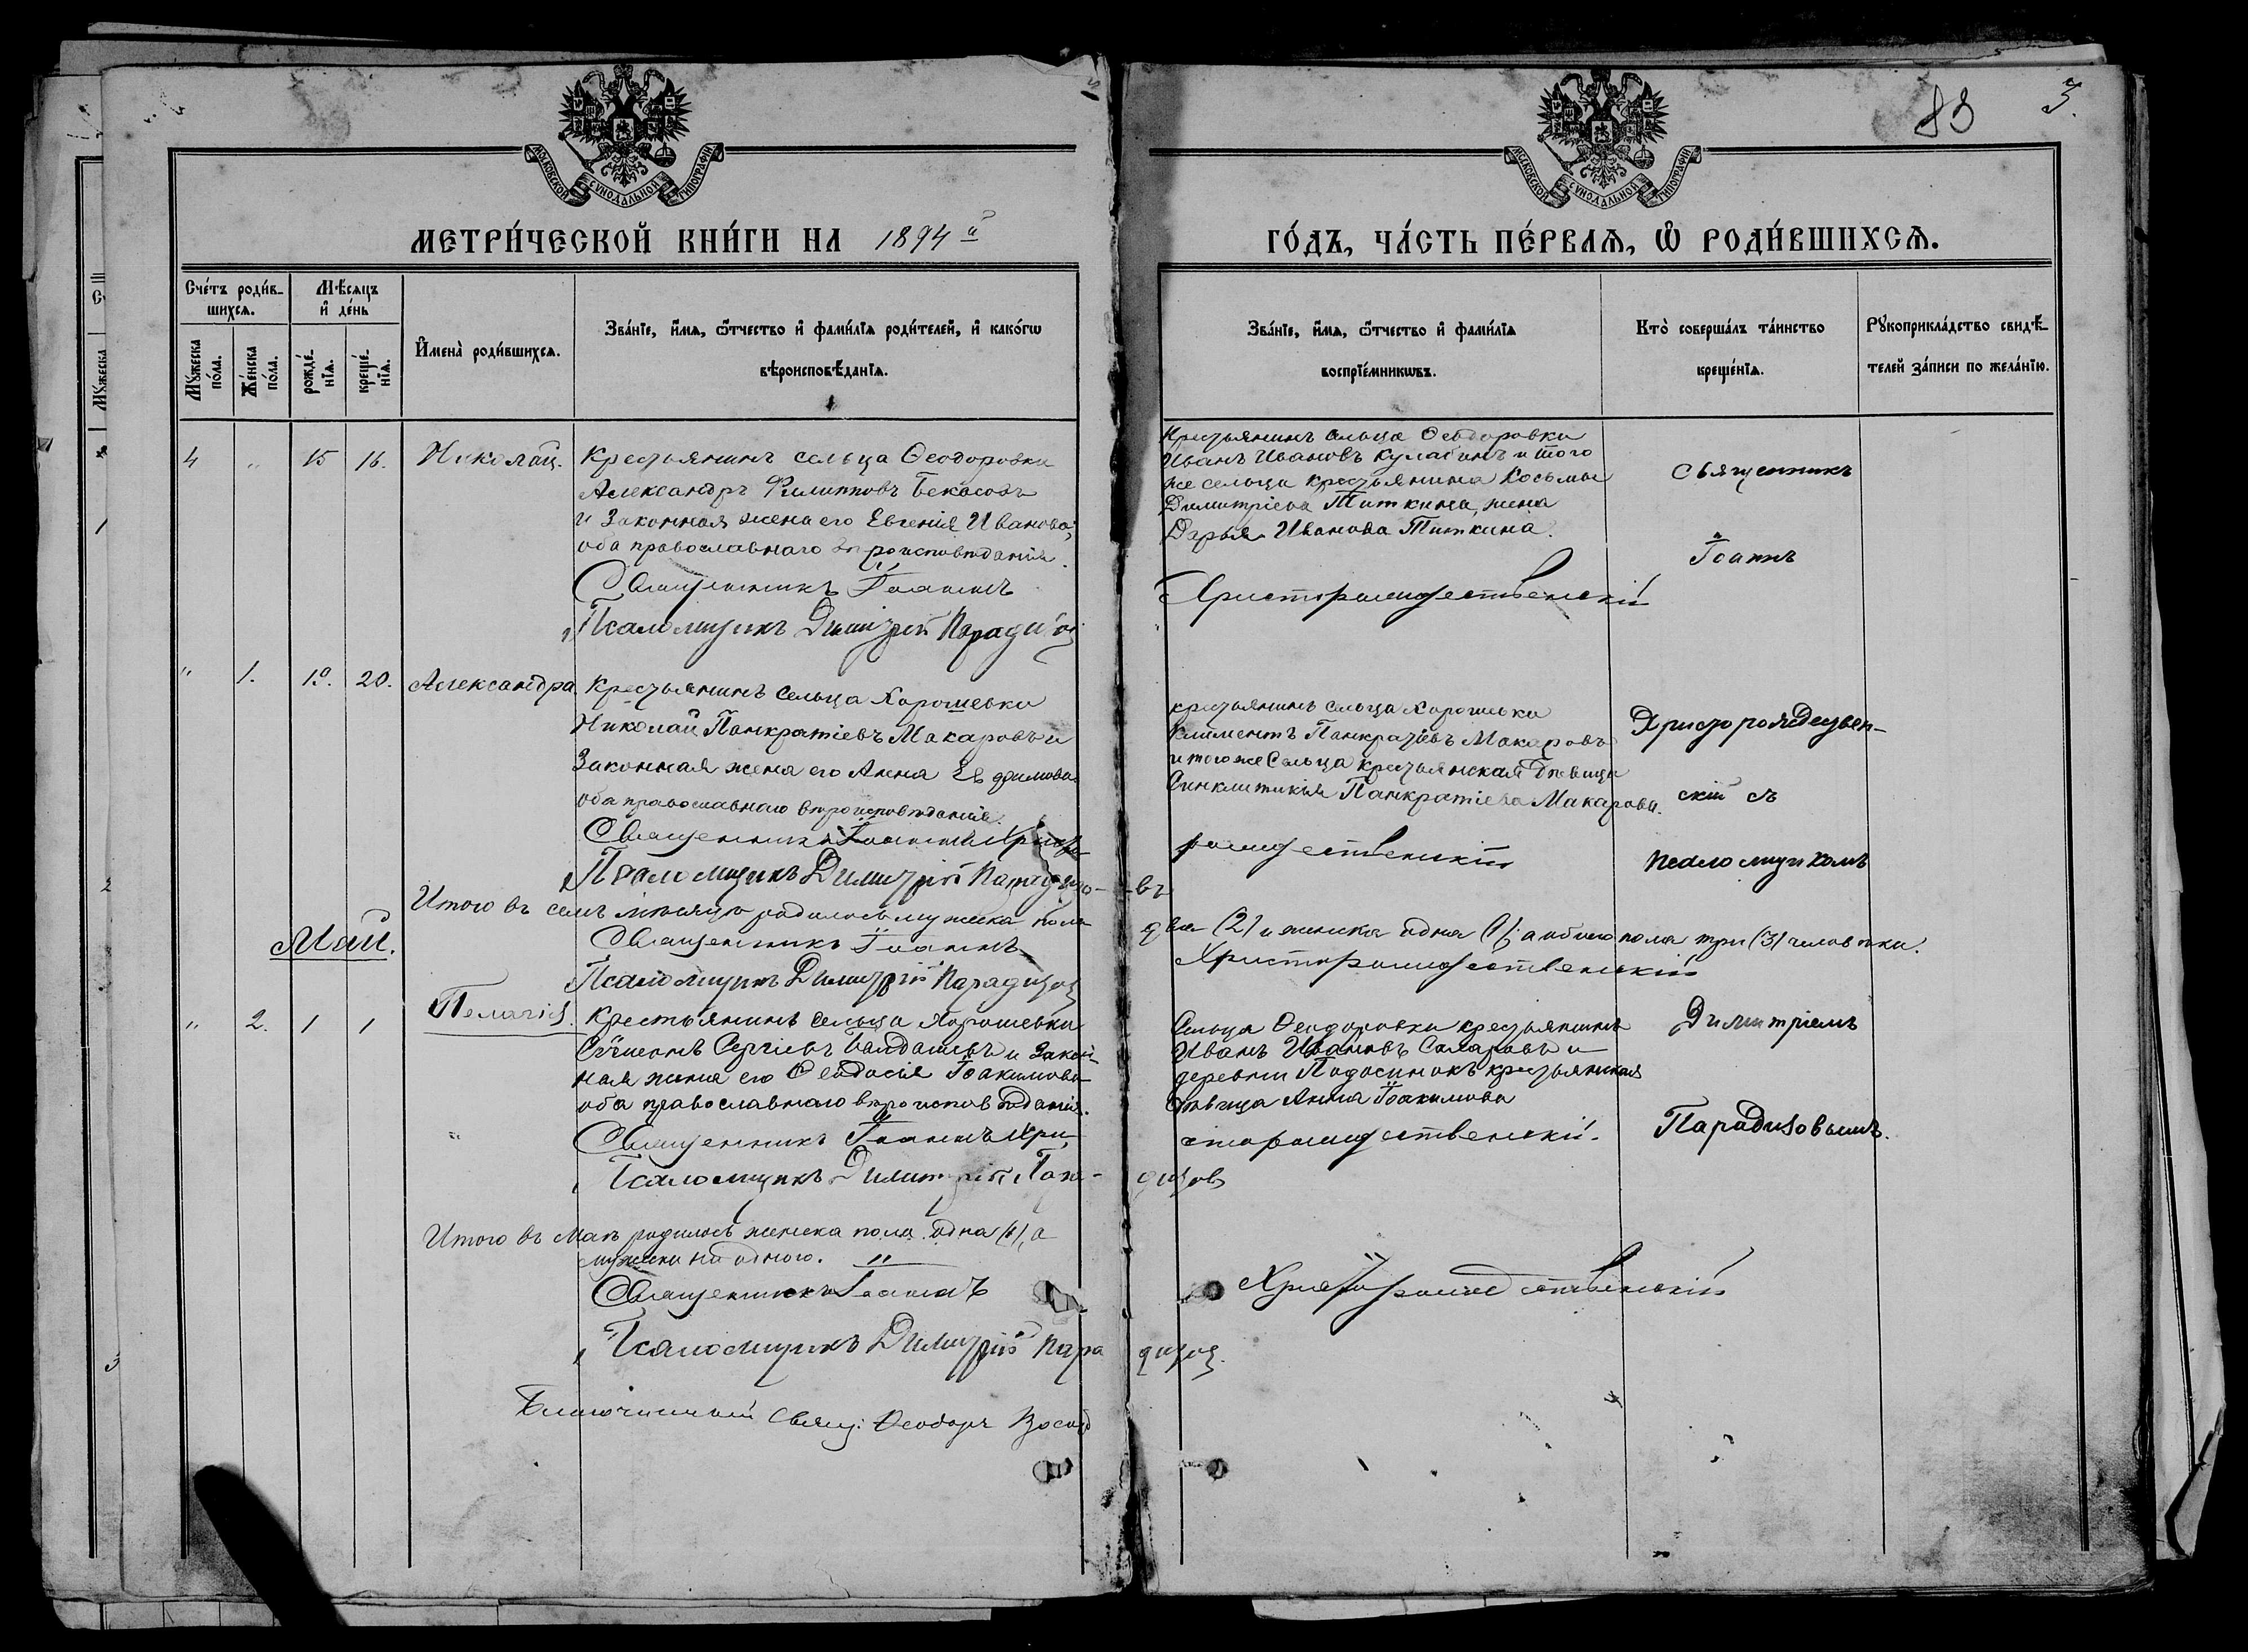 83
3.
МОСКОВСКОЙ СѴНОДАЛЬНОЙ ТИПОГРАФІИ
МОСКОВСКОЙ СѴНОДАЛЬНОЙ ТИПОГРАФІИ
МЕТРИ́ЧЕСКОЙ КНИ́ГИ НА 1894 й
ГО́ДЪ, ЧА́СТЬ ПЕ́РВАѦ, Ѡ҆ РОДИ́ВШИХСѦ.
Сче́тъ роди́в-
шихсѧ.
Мѣсѧцъ
и҆ де́нь
Мꙋжеска по́ла.
Же́нска по́ла.
рожде́нїѧ.
креще́нїѧ.
И҆мена̀ роди́вшихсѧ.
Зва́нїе, и҆́мѧ, ѻ҆́тчество и҆ фами́лїѧ роди́телей, и҆ како́гѡ
вѣроисповѣ́данїѧ.
Зва́нїе, и҆́мѧ, ѻ҆́тчество и҆ фами́лїѧ
воспрїе́мникѡвъ.
Кто̀ соверша́лъ та́инство
креще́нїѧ.
Рꙋкоприкла́дство свидѣ́-
телей за́писи по жела́нїю.
4 " 15 16. Николай.
Крестьянинъ сельца Ѳеодоровки
Александръ Филипповъ Бекасовъ
и законная жена его Евгенія Иванова,
оба православнаго вѣроисповѣданія.
Священникъ Іоаннъ
Псаломщикъ Димитрій Парадизов
Крестьянинъ сельца Ѳеодоровки
Иванъ Ивановъ Кулагинъ и того
же сельца крестьянина Косьмы
Димитріева Титкина, жена
Дарья Иванова Титкина.
Христорождественскій
Священникъ
Іоаннъ
" 1. 19. 20. Александра.
Крестьянинъ сельца Хорошевки
Николай Панкратіевъ Макаровъ и
законная жена его Анна Евфимова
оба православнаго вѣроисповѣданія.
Священникъ Іоаннъ Христо-
Псаломщикъ Димитрій Парадизо-
крестьянинъ сельца Хорошевки
Климентъ Панкратіевъ Макаровъ
и того же сельца крестьянская дѣвица
Синклитикія Панкратіева Макарова.
рождественскій
въ
Христорождествен-
скій съ
псаломщикомъ
Итого въ семъ мѣсяцѣ родилось мужеска пола
два (2) и женска одна (1); а обоего пола три (3) человѣка.
Священникъ Іоаннъ
Христорождественскій
Псаломщикъ Димитрій Парадизов
Май.
" 2. 1 1 Пелагія.
Крестьянинъ сельца Хорошевки
Сѵмеонъ Сергіевъ Балдашевъ и закон-
ная жена его Ѳеодосія Іоакимова
оба православнаго вѣроисповѣданія.
Священникъ Іоаннъ Хри-
Псаломщикъ Димитрій Пара-
Сельца Ѳеодоровки крестьянинъ
Иванъ Ивановъ Сахаровъ и
деревни Подосинокъ крестьянская
дѣвица Анна Іоакимова
сторождественскій.
дизовъ
Димитріемъ
Парадизовымъ.
Итого въ Маѣ родилось женска пола одна (1), а
мужеска ни одного. "
Священникъ Іоаннъ
Христорождественскій
Псаломщикъ Димитрій Пара
дизов.
Благочинный Свящ: Ѳеодоръ